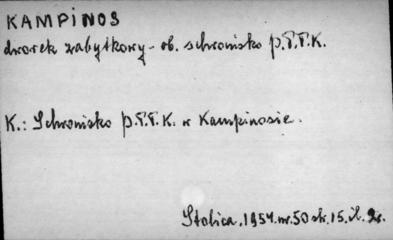 KAMPINOS
dworek zabytkowy - ob. schronisko P.T.T.K.
K.: Schronisko P.T.T.K. w Kampinosie.
Stolica, 1954. nr. 50 str. 15. il.